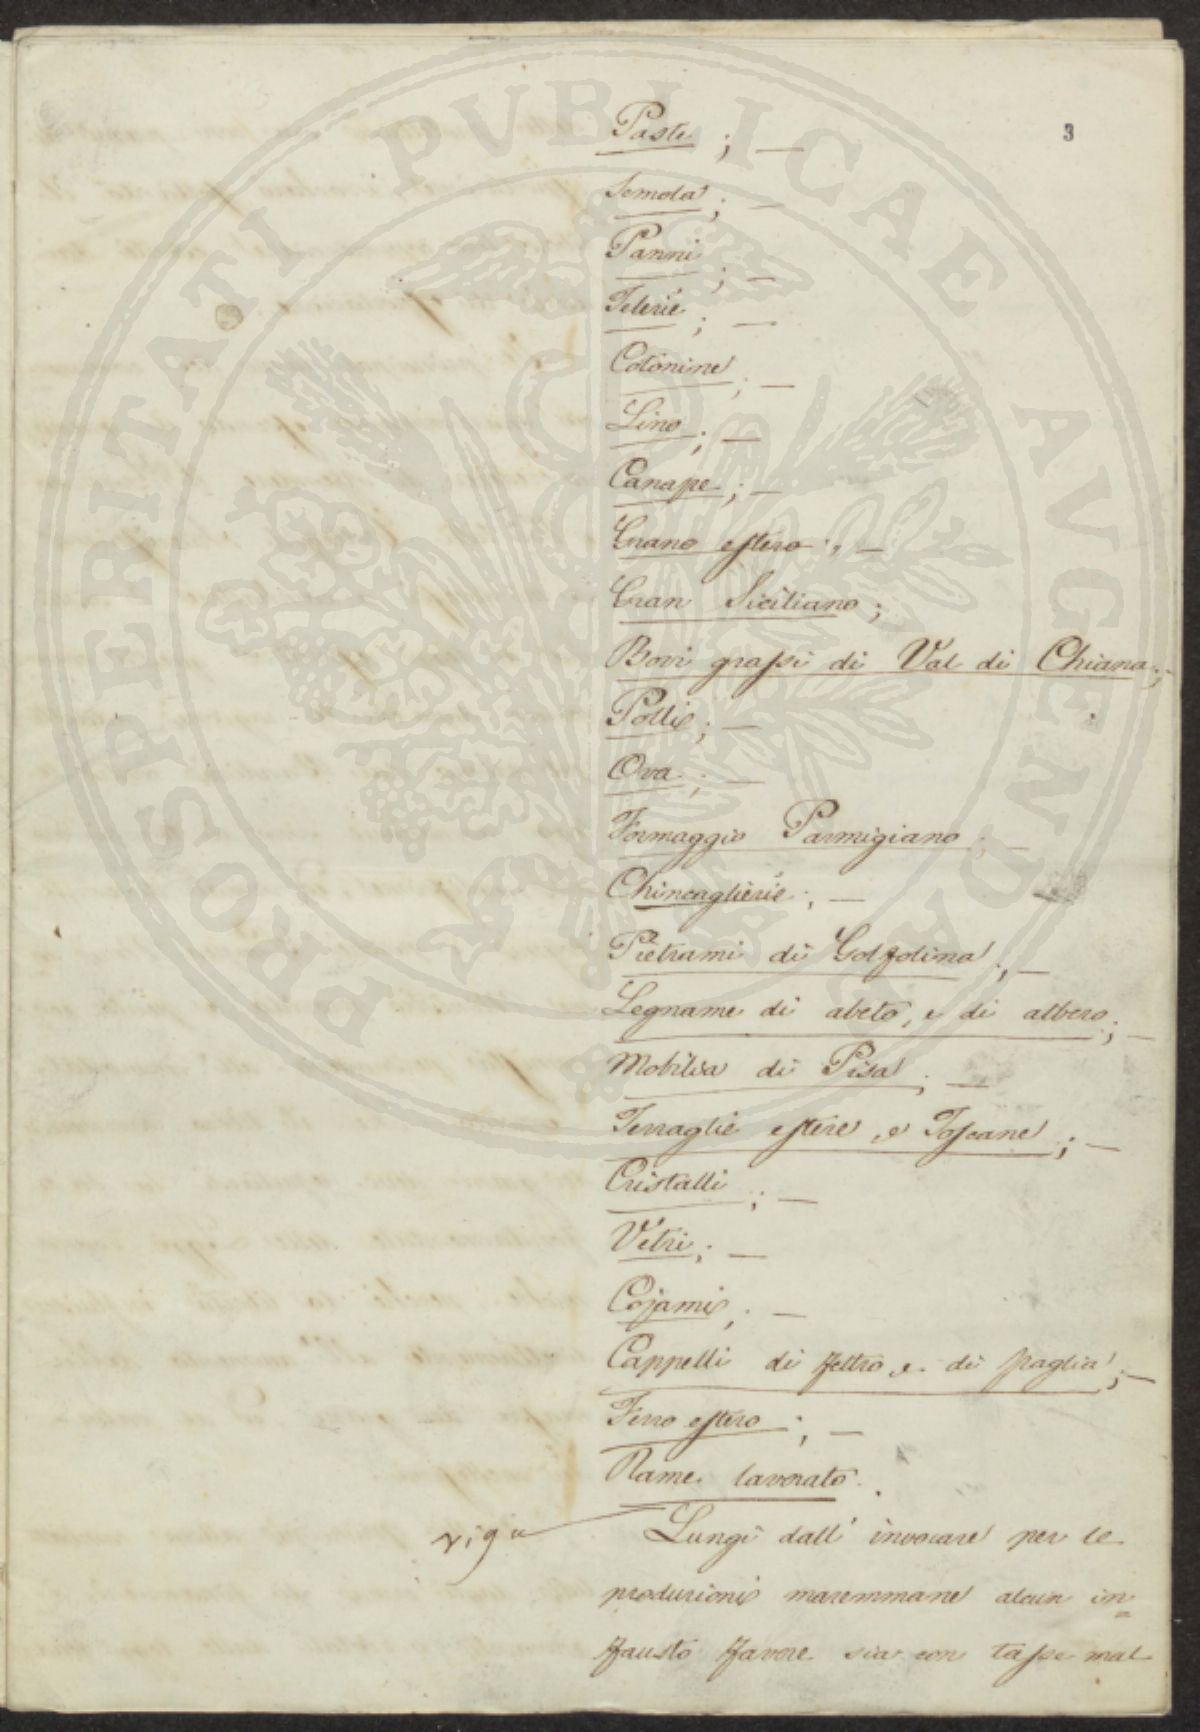 3
Paste ; —
Semola ; —
Panni ; —
Telerie ; —
Cotonine ; —
Lino ; —
Canape ; —
Grano estero ; —
Gran Siciliano ;
Bovi grassi di Val di Chiana ;
Polli ; —
Ova ; —
Formaggio Parmigiano ; —
Chincaglierie ; —
Pietrami di Golfolina ; —
Legname di abeto, e di albero ; —
Mobilia di Pisa ; —
Terraglie estere, e Toscane ; —
Cristalli ; —
Vetri ; —
Cojami ; —
Cappelli di feltro, e di paglia ; —
Ferro estero ; —
Rame lavorato .
riga
Lungi dall' invocare per le
produzioni maremmane alcun in=
fausto favore sia con tasse mal
PROSPERITATI PVBLICAE AVGENDAE